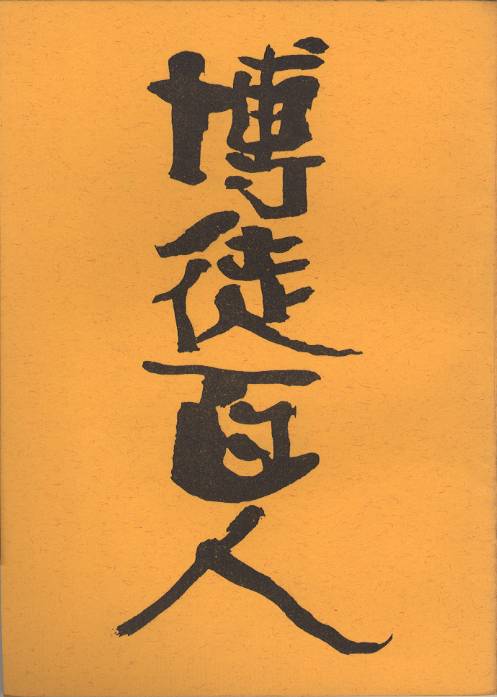 博徒百人